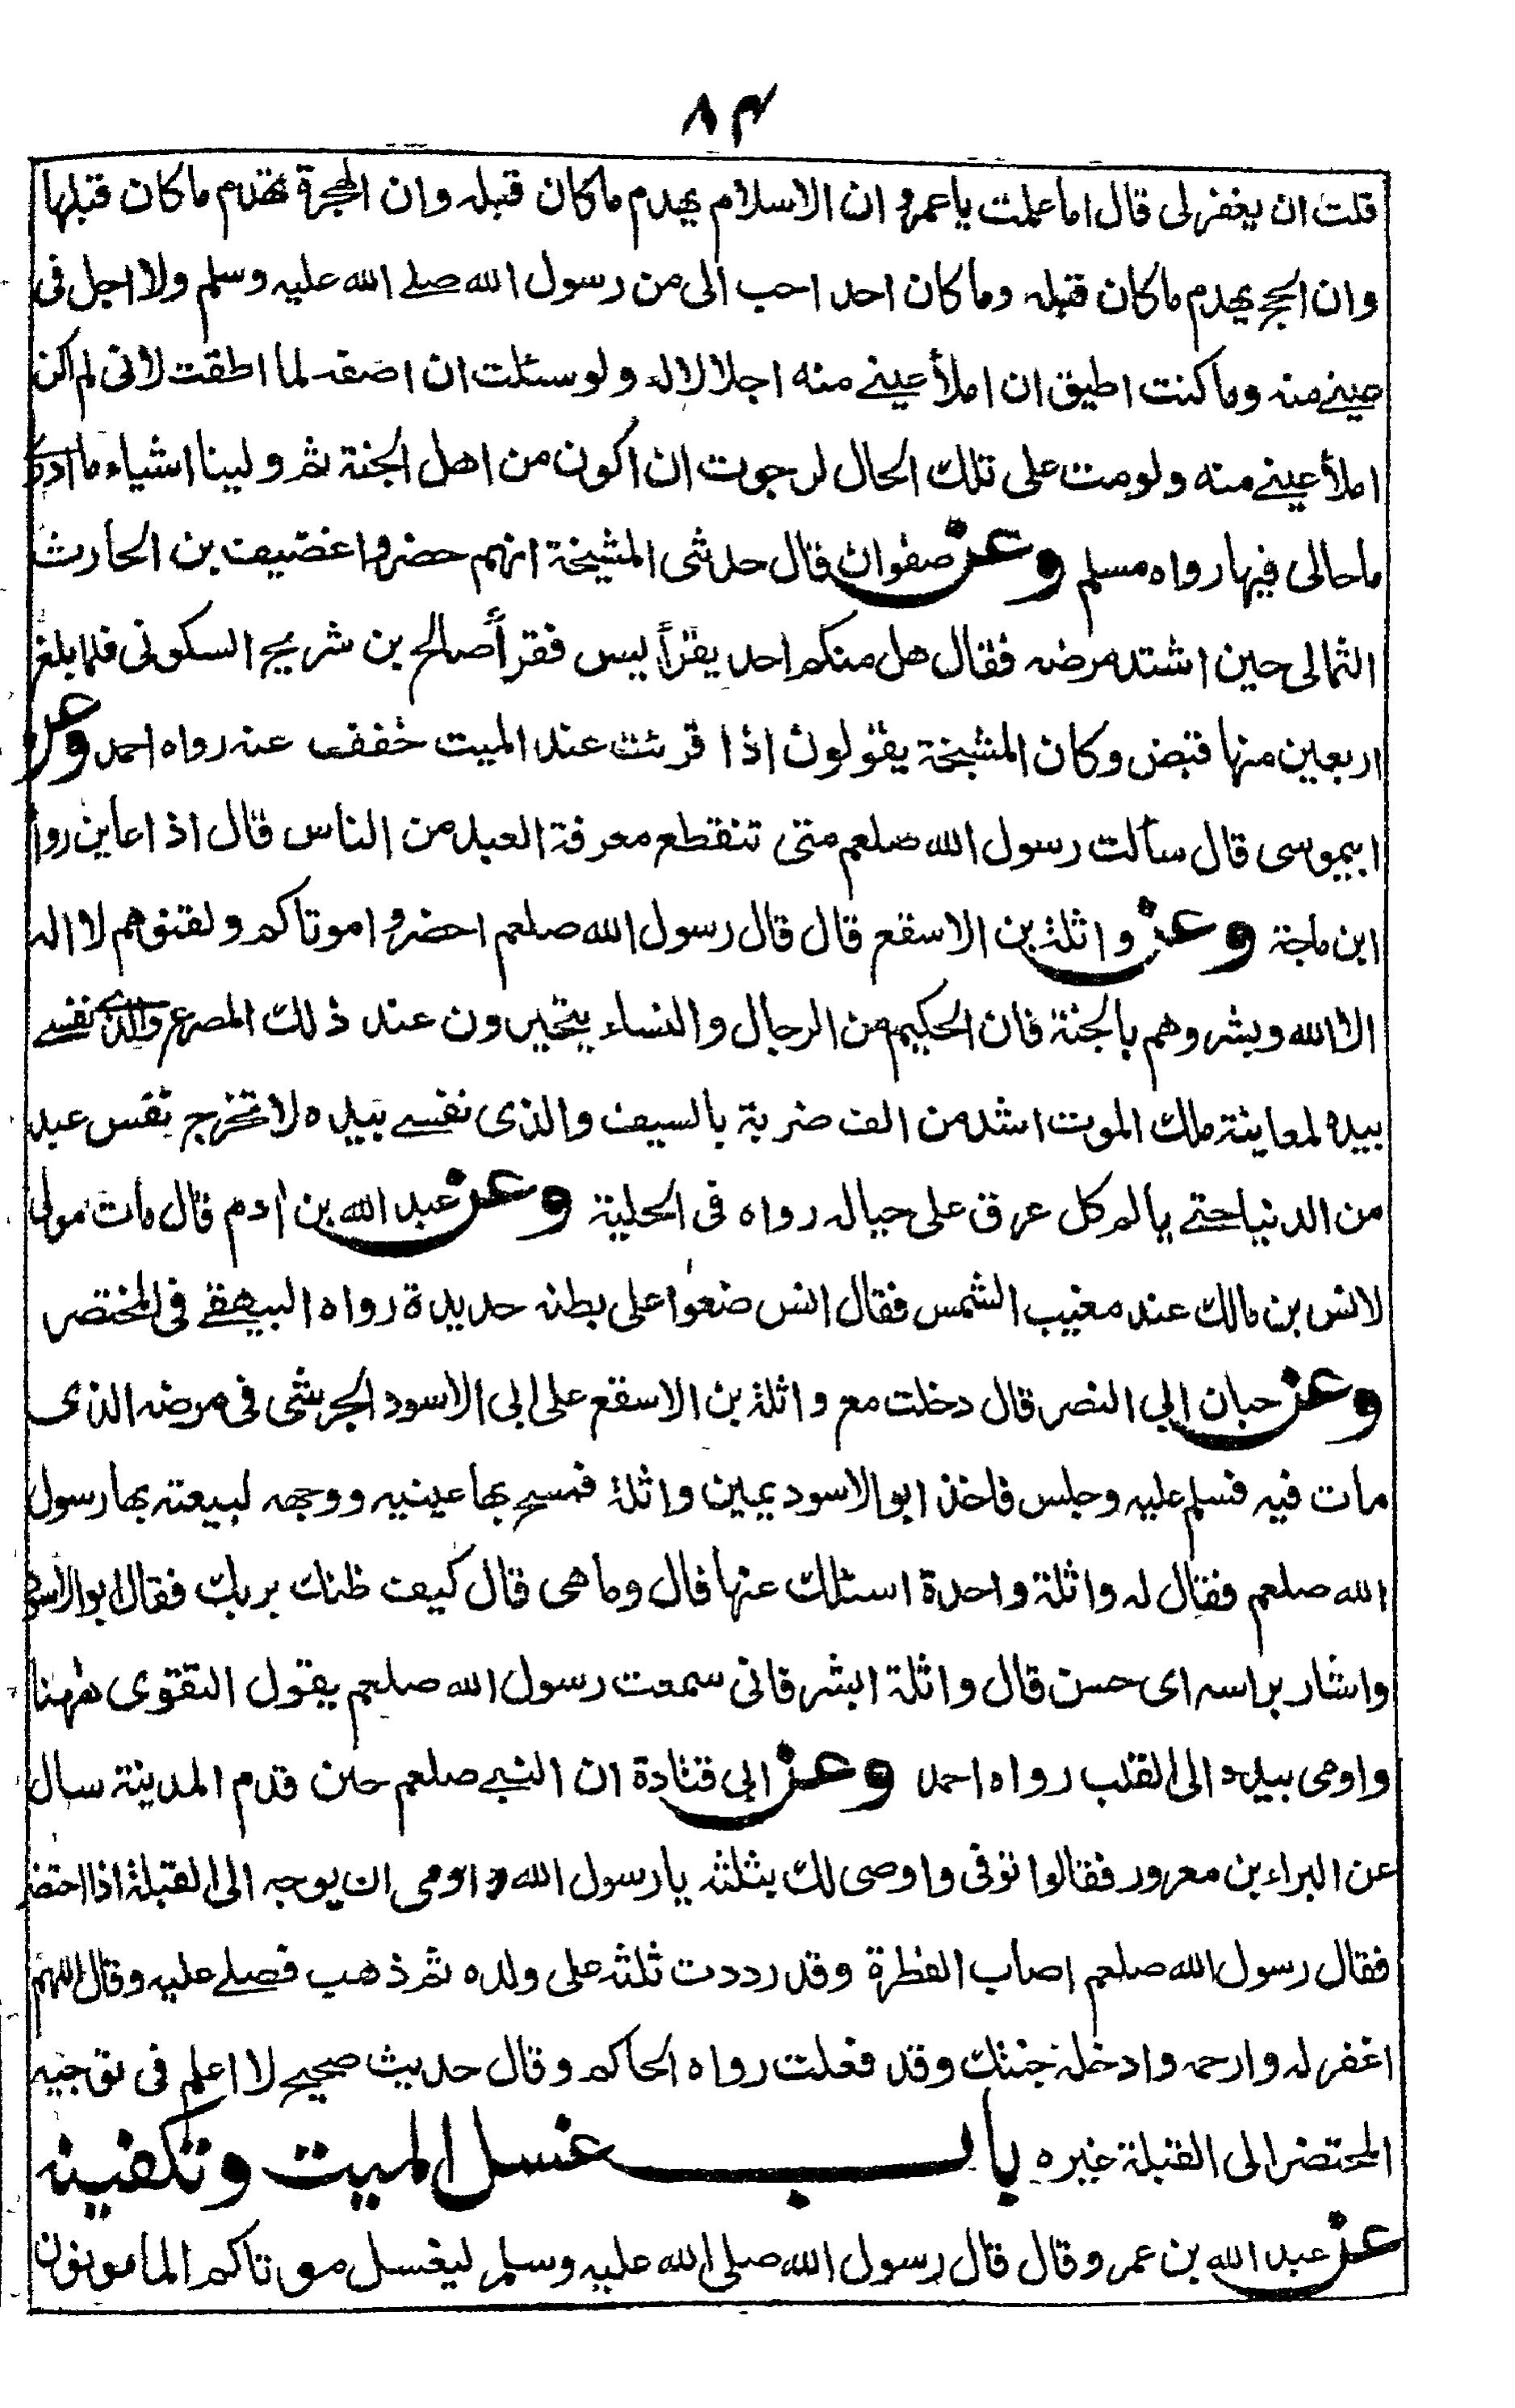 ٨٣
قلت ان يغفر لى قال اما علمت يا عمرو ان الاسلام يهدم ما كان قبله وان الهجرة تهدم ما كان قبلها
وان الحج يهدم ما كان قبله وما كان احد احب الى من رسول الله صلے الله عليه وسلم ولا اجل فى
عينے منه وما كنت اطيق ان املأ عينے منه اجلالا له ولو سئلت ان اصفه لما اطقت لانى لم اكن
املأ عينے منه ولو مت على تلك الحال لرجوت ان اكون من اهل الجنة ثم ولينا اشياء ما ادرى
ما حالى فيها رواه مسلم وعن صفوان قال حدثنى المشيخة انهم حضروا غضيف بن الحارث
الثمالى حين اشتد مرضه فقال هل منكم احد يقرأ يس فقرأ صالح بن شريح السكونى فلما بلغ
اربعين منها قبض وكان المشيخة يقولون اذا قرئت عند الميت خفف عنه رواه احمد وعن
ابيموسى قال سألت رسول الله صلعم متى تنقطع معرفة العبد من الناس قال اذا عاين رواه
ابن ماجة وعن واثلة بن الاسقع قال قال رسول الله صلعم احضروا موتاكم ولقنوهم لا اله
الا الله وبشروهم بالجنة فان الحكيم من الرجال والنساء يتحيرون عند ذلك المصرع والذے نفسے
بيده لمعاينة ملك الموت اشد من الف ضربة بالسيف والذى نفسے بيده لا تخرج نفس عبد
من الدنيا حتے يالم كل عرق على حياله رواه فى الحلية وعن عبد الله بن ادم قال مات مولى
لانس بن مالك عند مغيب الشمس فقال انس ضعوا على بطنه حديدة رواه البيهقے فى المختصر
وعن حبان ابى النصر قال دخلت مع واثلة بن الاسقع على ابى الاسود الجرشى فى مرضه الذى
مات فيه فسلم عليه وجلس فاخذ ابو الاسود يمين واثلة فمسح بها عينيه ووجهه لبيعته بها رسول
الله صلعم فقال له واثلة واحدة اسئلك عنها قال وما هى قال كيف ظنك بربك فقال ابو الاسود
واشار براسه اى حسن قال واثلة ابشر فانى سمعت رسول الله صلعم يقول التقوى ههنا
واومى بيده الى القلب رواه احمد وعن ابى قتادة ان النبے صلعم حين قدم المدينة سال
عن البراء بن معرور فقالوا توفى واوصى لك بثلثه يا رسول الله واومى ان يوجه الى القبلة اذا احتضر
فقال رسول الله صلعم اصاب الفطرة وقد رددت ثلثه على ولده ثم ذهب فصلے عليه وقال اللهم
اغفر له وارحمه وادخله جنتك وقد فعلت رواه الحاكم وقال حديث صحيح لا اعلم فى توجيه
المحتضر الى القبلة غيره باب غسل الميت وتكفينه
عن عبد الله بن عمر وقال قال رسول الله صلى الله عليه وسلم ليغسل موتاكم المامونون